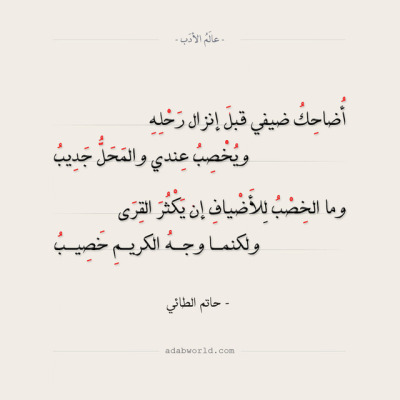 - عالَمُ الأدَب -
أُضاحِكُ ضيفي قبلَ إنزال رَحْلِهِ
ويُخْصِبُ عِندي والمَحَلُّ جَدِيبُ
وما الخِصْبُ لِلأَضْيافِ إن يَكْثُرَ القِرَى
ولكنمـا وجـهُ الكريـمِ خَصِيـبُ
- حاتم الطائي
adabworld.com